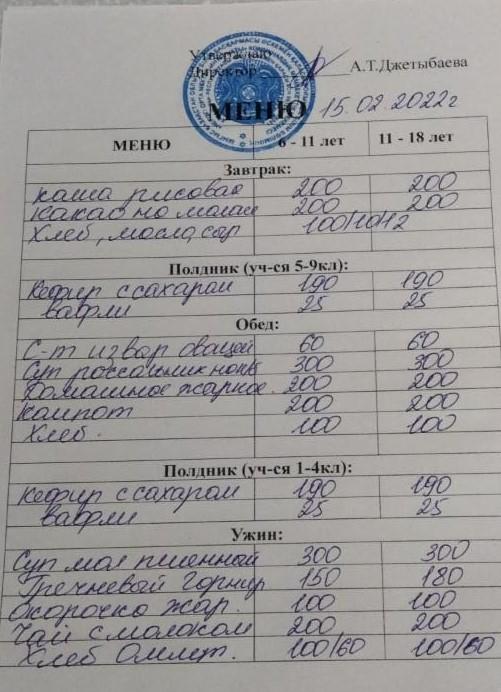 Утверждаю
Директор А.Т.Джетыбаева
МЕНЮ 15.02.2022г
МЕНЮ 6 - 11 лет 11 - 18 лет
Завтрак:
каша рисовая 200 200
какао на молоке 200 200
Хлеб, масло, сыр 100/10/12
Полдник (уч-ся 5-9кл):
Кефир с сахаром 190 190
вафли 25 25
Обед:
С-т из вар овощей 60 60
Суп рассольник 300 300
Домашнее жаркое 200 200
Компот 200 200
Хлеб. 100 100
Полдник (уч-ся 1-4кл):
Кефир с сахаром 190 190
вафли 25 25
Ужин:
Суп мол пшенный 300 300
Гречневый Гарнир 150 180
Окорочка жар. 100 100
Чай с молоком 200 200
Хлеб Омлет. 100/60 100/60